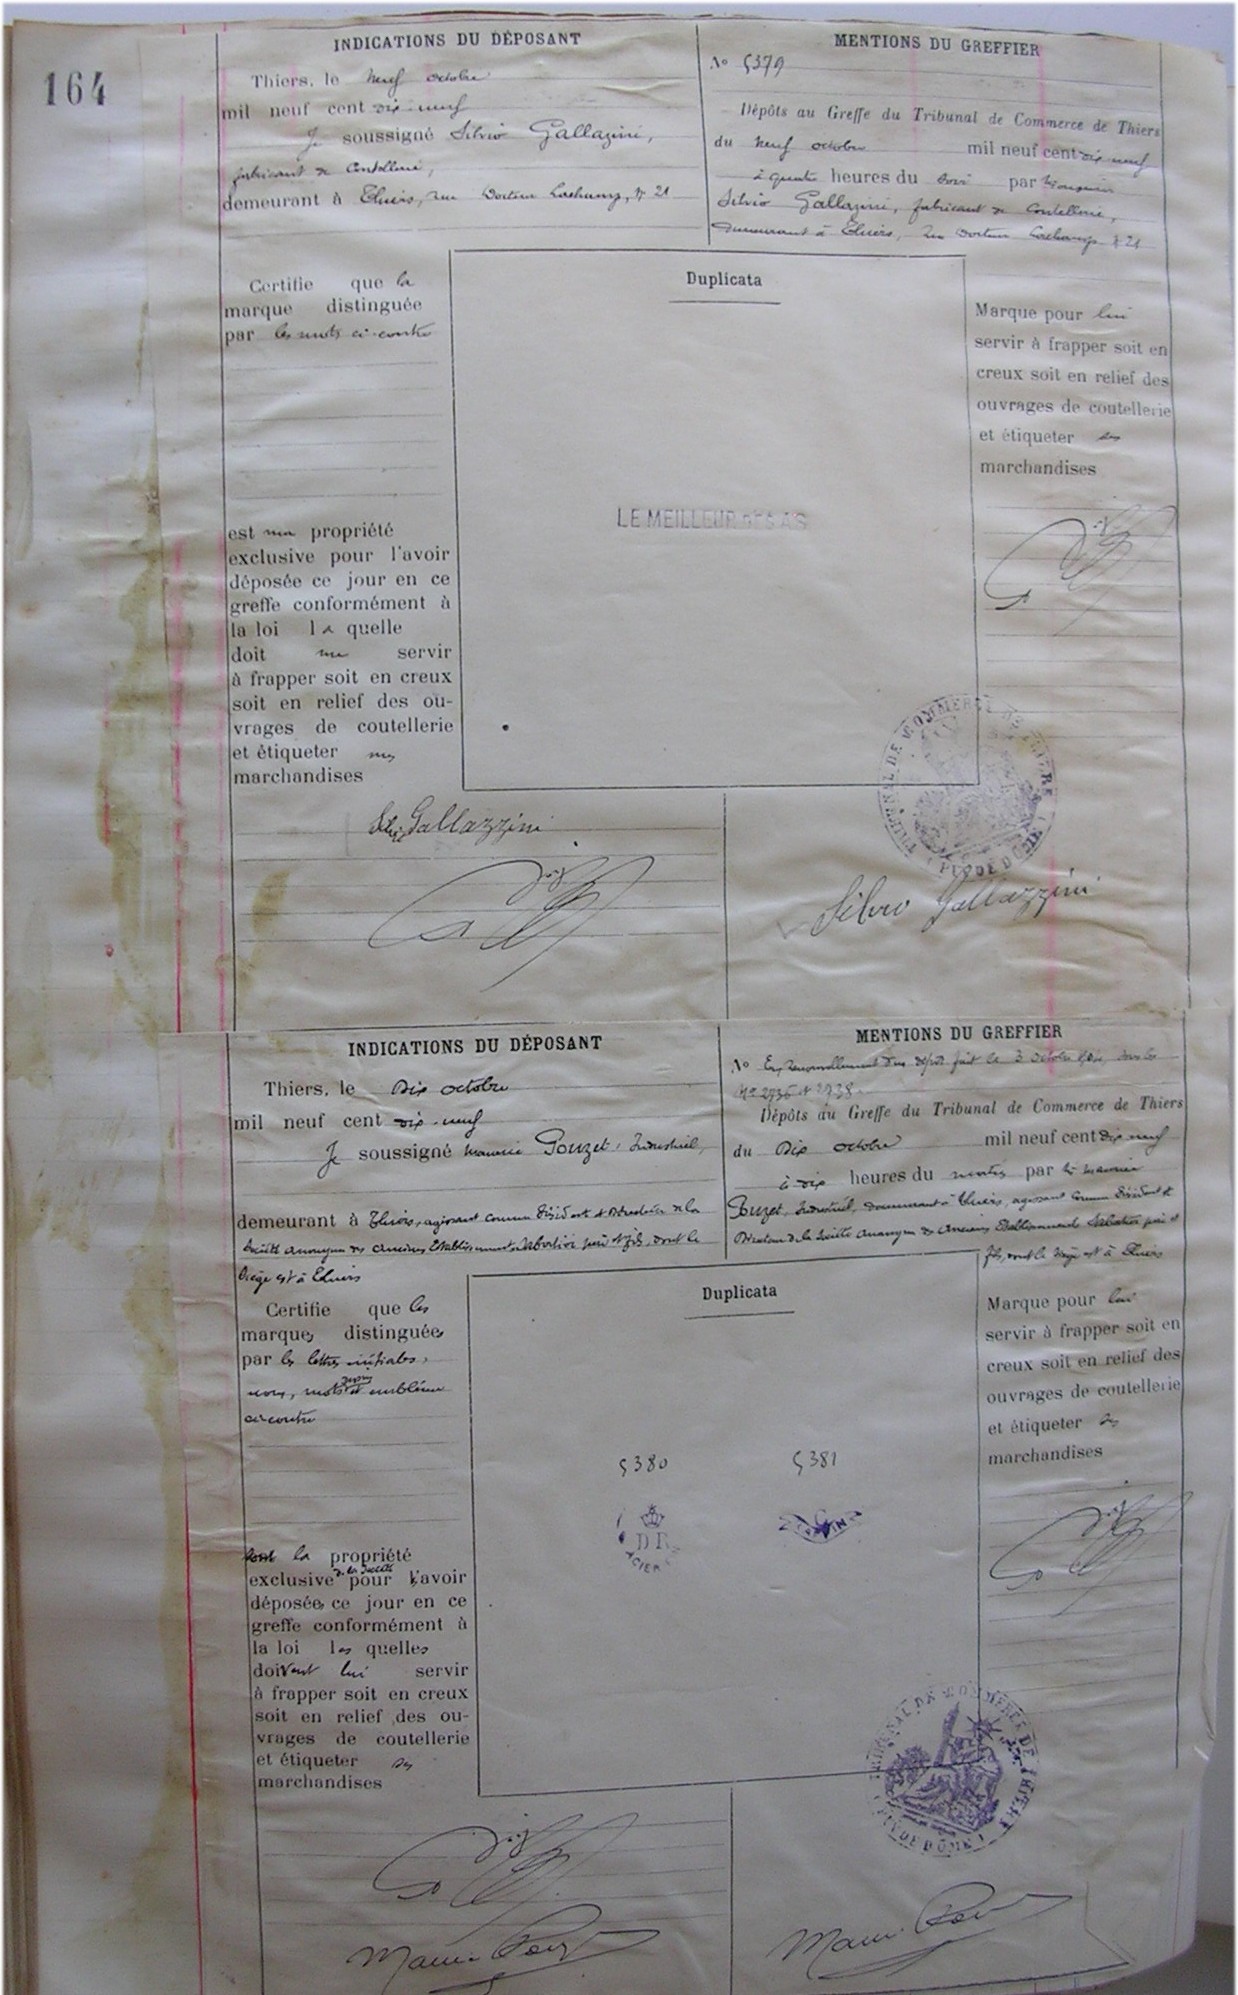 164
INDICATIONS DU DÉPOSANT
Thiers, le neuf octobre
mil neuf cent dix neuf
Je soussigné Silvio Gallazini,
fabricant de coutellerie,
demeurant à Thiers, rue Docteur Lachamp, N° 21
MENTIONS DU GREFFIER
N° 5379
Dépôts au Greffe du Tribunal de Commerce de Thiers
du neuf octobre mil neuf cent dix neuf
à quatre heures du soir par Monsieur
Silvio Gallazini, fabricant de coutellerie,
demeurant à Thiers, rue Docteur Lachamp N° 21
Certifie que la
marque distinguée
par les mots ci-contre
est ma propriété
exclusive pour l'avoir
déposée ce jour en ce
greffe conformément à
la loi la quelle
doit me servir
à frapper soit en creux
soit en relief des ou-
vrages de coutellerie
et étiqueter mes
marchandises
Duplicata
LE MEILLEUR DES AS
Marque pour lui
servir à frapper soit en
creux soit en relief des
ouvrages de coutellerie
et étiqueter ses
marchandises
TRIBUNAL DE COMMERCE DE THIERS
(PUY DE DÔME)
Silvio Gallazzini
Silvio Gallazzini
INDICATIONS DU DÉPOSANT
Thiers, le Dix octobre
mil neuf cent dix-neuf
Je soussigné Maurice Pouzet, Industriel,
demeurant à Thiers, agissant comme Président et Directeur de la
Société anonyme des Anciens Etablissements Sabatier père et fils, dont le
Siège est à Thiers
MENTIONS DU GREFFIER
N° En renouvellement d'un dépôt fait le 3 octobre sous les
Nos 2736 et 2738
Dépôts au Greffe du Tribunal de Commerce de Thiers
du Dix octobre mil neuf cent dix neuf
à dix heures du matin par Mr Maurice
Pouzet, Industriel, demeurant à Thiers, agissant comme Président et
Directeur de la Société Anonyme des Anciens Etablissements Sabatier père et
fils, dont le siège est à Thiers
Certifie que les
marques distinguées
par les lettres initiales,
noms, mots et emblème
ci-contre
sont la propriété
exclusive de la Société pour l'avoir
déposées ce jour en ce
greffe conformément à
la loi les quelles
doivent lui servir
à frapper soit en creux
soit en relief des ou-
vrages de coutellerie
et étiqueter ses
marchandises
Duplicata
5380 5381
DR
ACIER
Marque pour lui
servir à frapper soit en
creux soit en relief des
ouvrages de coutellerie
et étiqueter ses
marchandises
TRIBUNAL DE COMMERCE DE THIERS
(PUY DE DÔME)